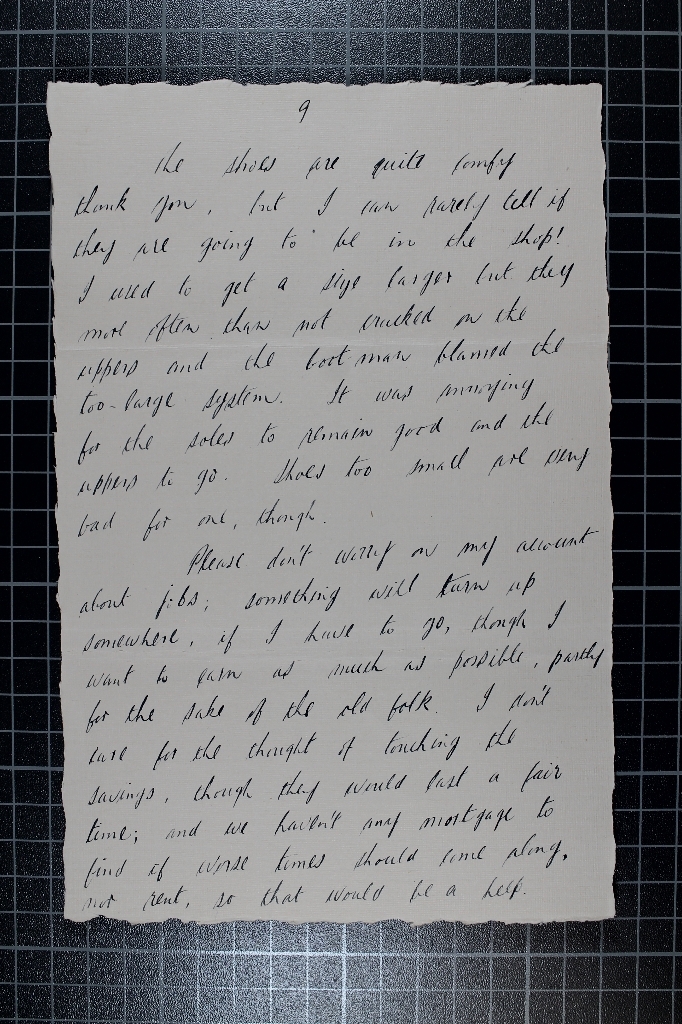 9
The shoes are quite comfy
thank you, but I can rarely tell if
they are going to be in the shop!
I used to get a size larger but they
more often than not cracked on the
uppers and the boot-man blamed the
too-large system. It was annoying
for the soles to remain good and the
uppers to go. Shoes too small are very
bad for one, though.
Please don't worry on my account
about jobs; something will turn up
somewhere, if I have to go, though I
want to earn as much as possible, partly
for the sake of the old folk. I don't
care for the thought of touching the
savings, though they would last a fair
time; and we haven't any mortgage to
find if worse times should come along,
nor rent, so that would be a help.